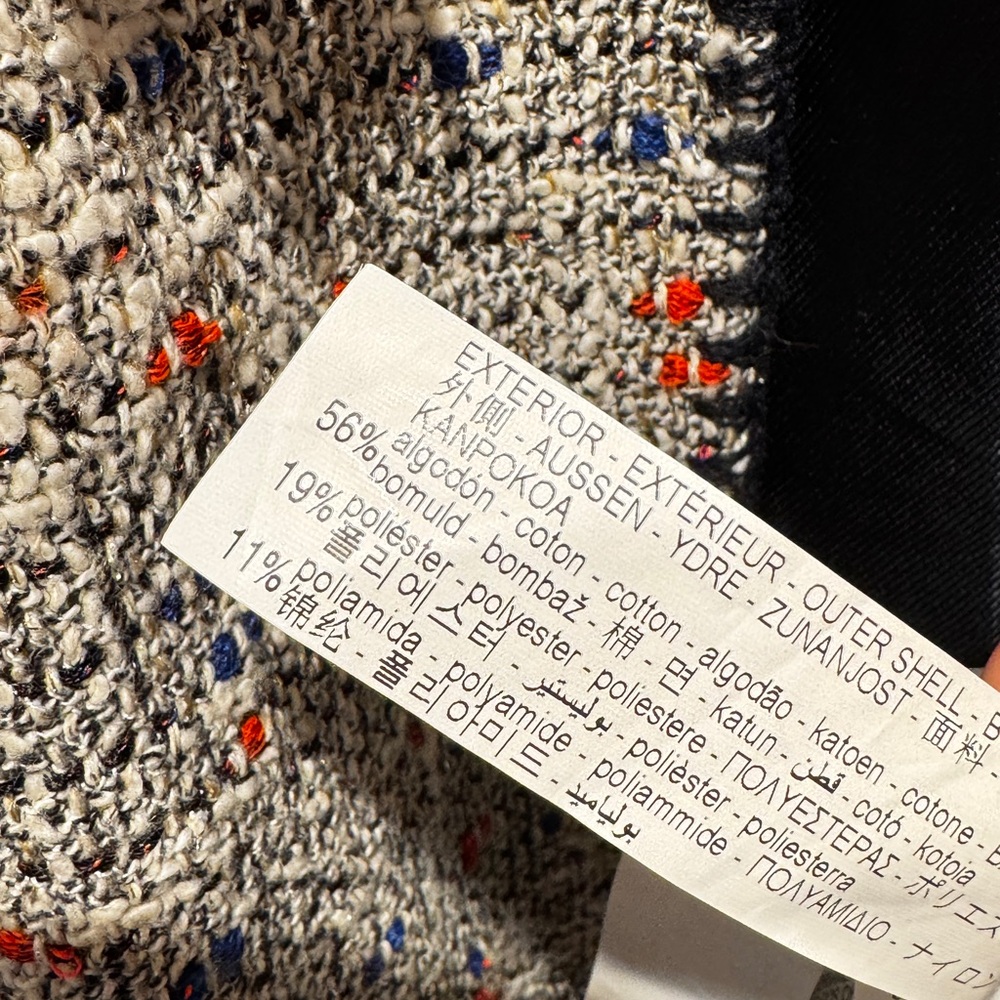 EXTERIOR - EXTÉRIEUR - OUTER SHELL - B
外側 - AUSSEN - YDRE - ZUNANJOST - 面料 -
KANPOKOA
56% algodón - coton - cotton - algodão - katoen - cotone - B
bomuld - bombaž - 棉 - 면 - katun - قطن - cotó - kotoia
19% poliéster - polyester - poliestere - ΠΟΛΥΕΣΤΕΡΑΣ - ポリエス
폴리에스터 - بوليستير - polièster - poliesterra
11% poliamida - polyamide - poliammide - ΠΟΛΥΑΜΙΔΙΟ - ナイロン
锦纶 - 폴리아미드 - بولياميد